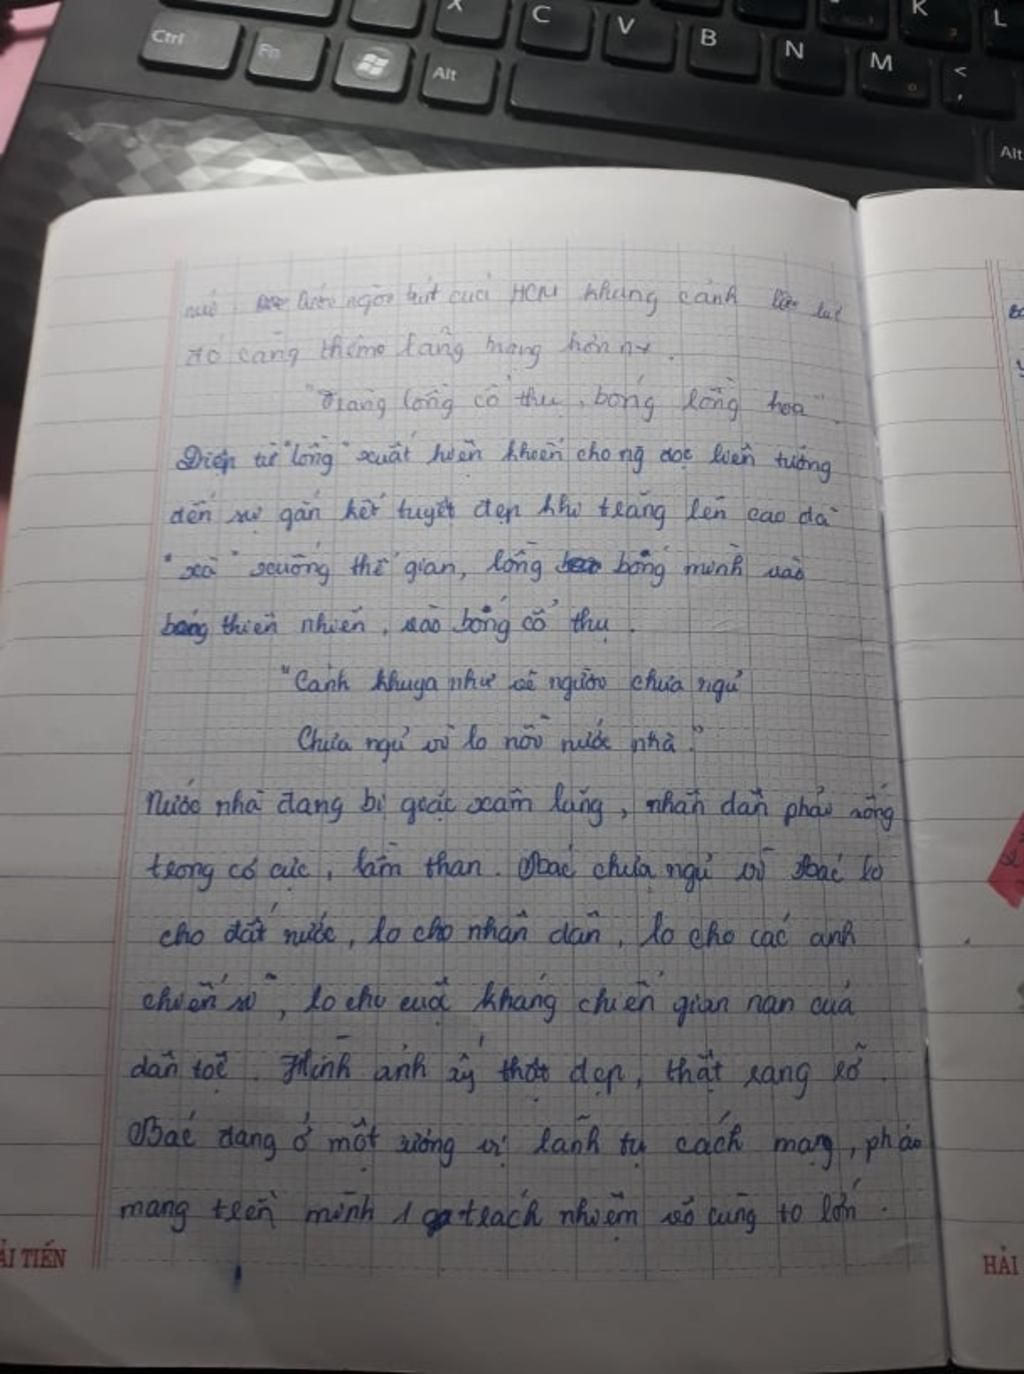 Ctrl Fn Alt X C V B N M K L < , Alt
dưới ngòi bút của HCM khung cảnh
đó càng thêm lãng mạng hơn
"Trăng lồng cổ thụ, bóng lồng hoa"
Điệp từ "lồng" xuất hiện khiến cho ng đọc liên tưởng
đến sự gắn kết tuyệt đẹp khi trăng lên cao đã
"xà" xuống thế gian, lồng bóng mình vào
bóng thiên nhiên, vào bóng cổ thụ.
"Cảnh khuya như vẽ người chưa ngủ
Chưa ngủ vì lo nỗi nước nhà."
Nước nhà đang bị giặc xâm lăng, nhân dân phải sống
trong cơ cực, lầm than. Bác chưa ngủ vì Bác lo
cho đất nước, lo cho nhân dân, lo cho các anh
chiến sĩ, lo cho cuộc kháng chiến gian nan của
dân tộc. Hình ảnh ấy thật đẹp, thật rạng rỡ.
Bác đang ở một cương vị lãnh tụ cách mạng, phải
mang trên mình 1 trách nhiệm vô cùng to lớn.
ẢI TIẾN
HẢI